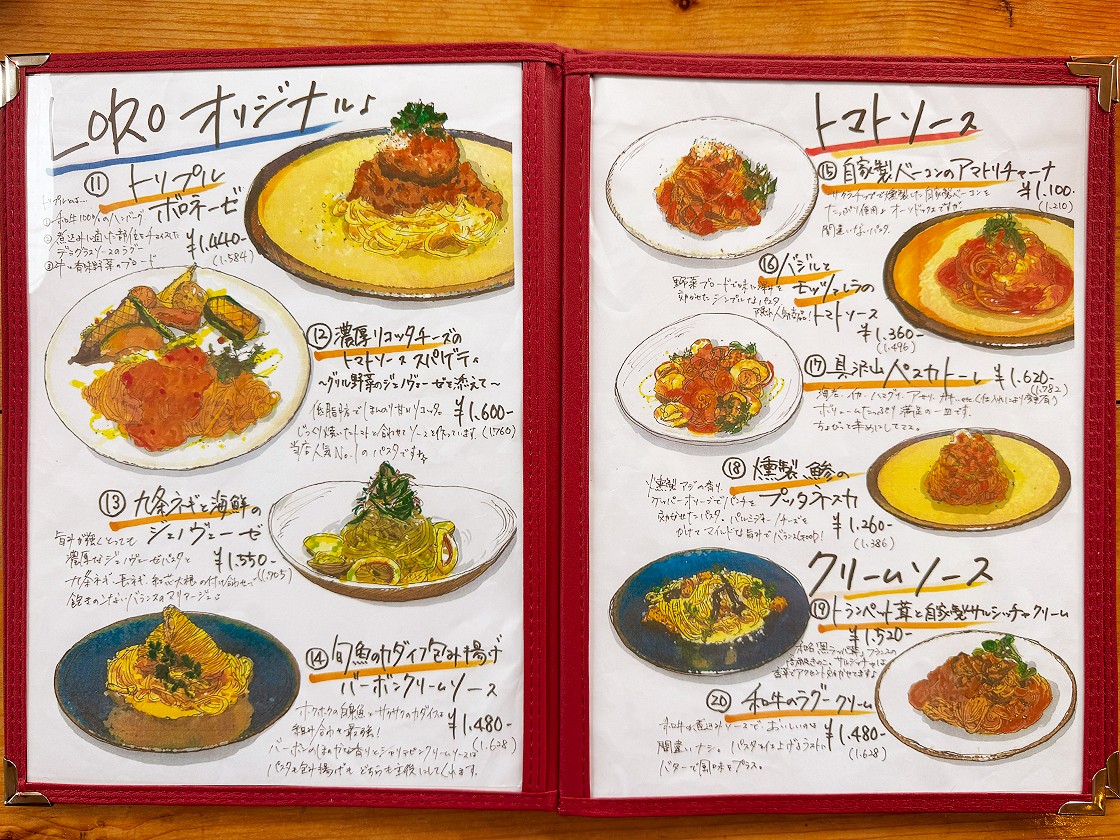 LORO オリジナル♪
⑪ トリプル
ボロネーゼ
①和牛100%のハンバーグ
②煮込みに適した部位をチョイスした
デミグラスソースのラグー
③牛と香味野菜のブロード
¥1.440-
(1.584)
⑫ 濃厚リコッタチーズの
トマトソース スパゲティ
〜グリル野菜のジェノヴェーゼを添えて〜
低脂肪でほんのり甘いリコッタと
¥1.600-
じっくり焼いたトマトと合わせてソースを作っています。
(1.760)
当店人気No.1のパスタですよ
⑬ 九条ネギと海鮮の
ジェノヴェーゼ
旨みが強くとっても
濃厚なジェノヴェーゼパスタと
¥1.550-
(1.705)
九条ネギ、長ネギ、紅芯大根の付け合わせ。
飽きのこないバランスのマリアージュ♪
⑭ 旬魚のカダイフ包み揚げ
バーボンクリームソース
ホクホクの白身魚とサクサクのカダイフは
組み合わせ最強!
¥1.480-
(1.628)
バーボンのほのかな香りとシャリマピンクリームソースは
パスタも包み揚げも どちらも主役にしてくれます。
トマトソース
⑮ 自家製ベーコンのアマトリチャーナ
サクラチップで燻製した自家製ベーコンを
¥1.100-
(1.210)
たっぷり使用♪オーソドックスですが
間違いないパスタ。
⑯ バジルと
モッツァレラの
トマトソース
野菜ブロードで味に深みを
効かせたシンプルなパスタ
隠れ人気商品!
¥1.360-
(1.496)
⑰ 具沢山ペスカトーレ ¥1.620-
(1.782)
海老、イカ、ハマグリ、アサリ、カキ…etc(仕入れにより変更有)
ボリュームたっぷり 満足の一皿です。
ちょびっと辛めにしてマス。
⑱ 燻製鯵の
プッタネスカ
燻製アジの香り、
ケッパーオリーブでパンチを
効かせたパスタ。パルミジャーノチーズを
かけてマイルドな旨みでバランスGOOD!
¥1.260-
(1.386)
クリームソース
⑲ トランペット茸と自家製サルシッチャクリーム
¥1.520-
香草でアクセント効かせてますよ
⑳ 和牛のラグークリーム
和牛の煮込みソースで、おいしいのは
¥1.480-
(1.628)
間違いナシ。パスタの仕上げるラストに
バターで風味をプラス。